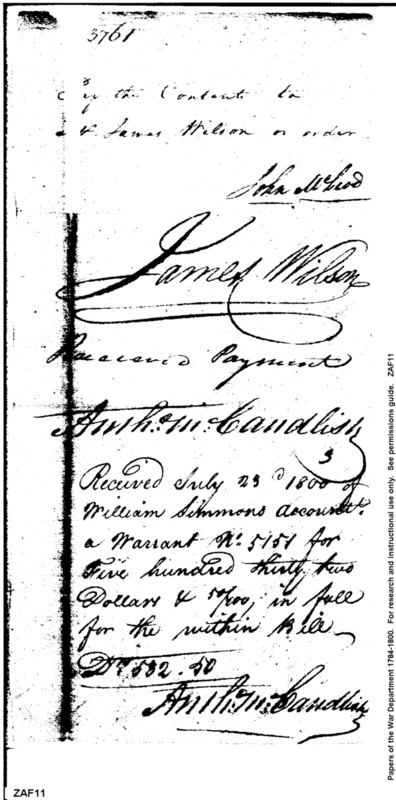 3761
Pay the Contents to
James Wilson or order
John McLeod
James Wilson
Received Payment
Anth: Mc:Candlish
3
Received July 23d 1800 of
William Simmons Accountt.
a Warrant No. 5151 for
Five hundred thirty two
Dollars & 50/100, in full
for the within Bill
Drs. 532.50
Anth: Mc:Candlish
Papers of the War Department 1784-1800. For research and instructional use only. See permissions guide. ZAF11
ZAF11